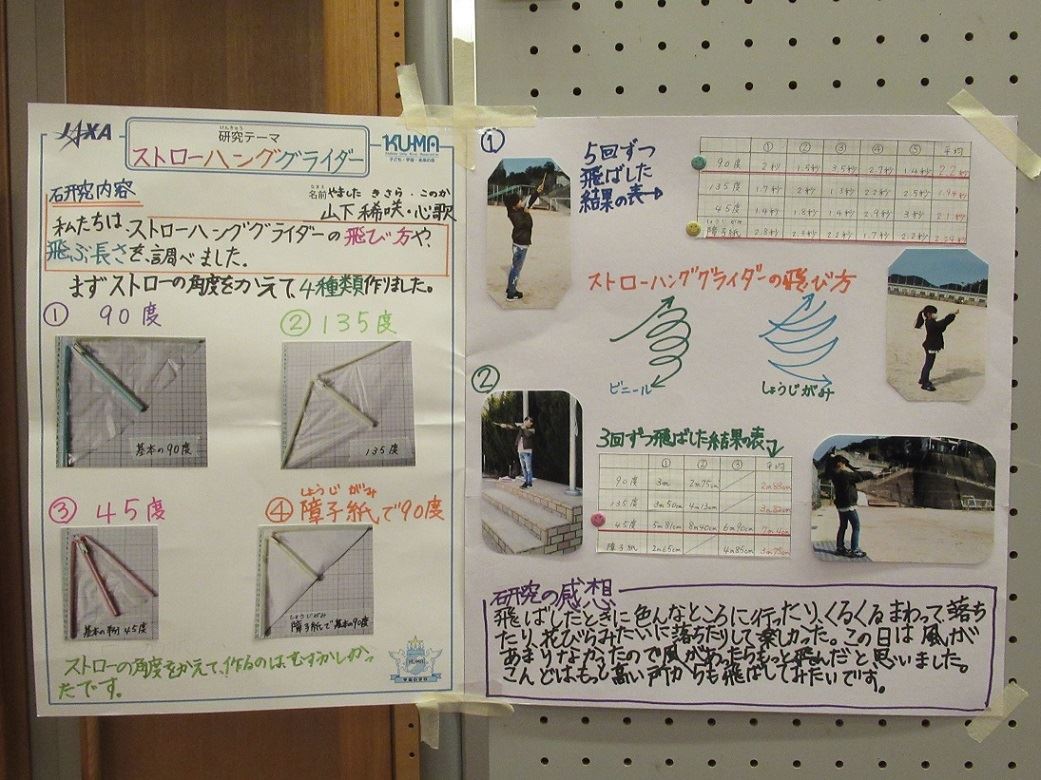 JAXA
けんきゅう
研究テーマ
ストローハンググライダー
KUMA
研究内容
なまえ やました きさら・このか
名前 山下稀咲・心歌
私たちはストローハンググライダーの飛び方や、
飛ぶ長さを調べました。
まずストローの角度をかえて、4種類作りました。
① 90度
② 135度
基本の90度
135度
③ 45度
しょうじ がみ
④ 障子紙で90度
基本の半分45度
しょうじがみ
障子紙で基本の90度
ストローの角度をかえて、作るのは、むずかしかっ
たです。
KUMA
①
5回ずつ
飛ばした
結果の表→
① ② ③ ④ ⑤ 平均
90度 2秒 1.5秒 3.5秒 2.7秒 1.4秒 2.2秒
135度 1.7秒 2秒 1.3秒 2.2秒 2.5秒 1.94秒
45度 1.4秒 1.8秒 1.4秒 2.9秒 3秒 2.1秒
しょうじがみ
障子紙 2.8秒 2.3秒 2.2秒 1.7秒 2.2秒 2.24秒
ストローハンググライダーの飛び方
ビニール
しょうじがみ
②
3回ずつ飛ばした結果の表
① ② ③ 平均
90度 3m 2m75cm
135度 3m50cm 4m13cm
45度 5m81cm 8m40cm 6m90cm 7m4cm
障子紙 2m65cm 4m85cm 3m75cm
研究の感想
飛ばしたときに色んなところに行ったり、くるくるまわって落ち
たり、花びらみたいに落ちたりして楽しかった。この日は風が
あまりなかったので風があったらもっと飛んだと思いました。
こんどはもっと高い所からも飛ばしてみたいです。